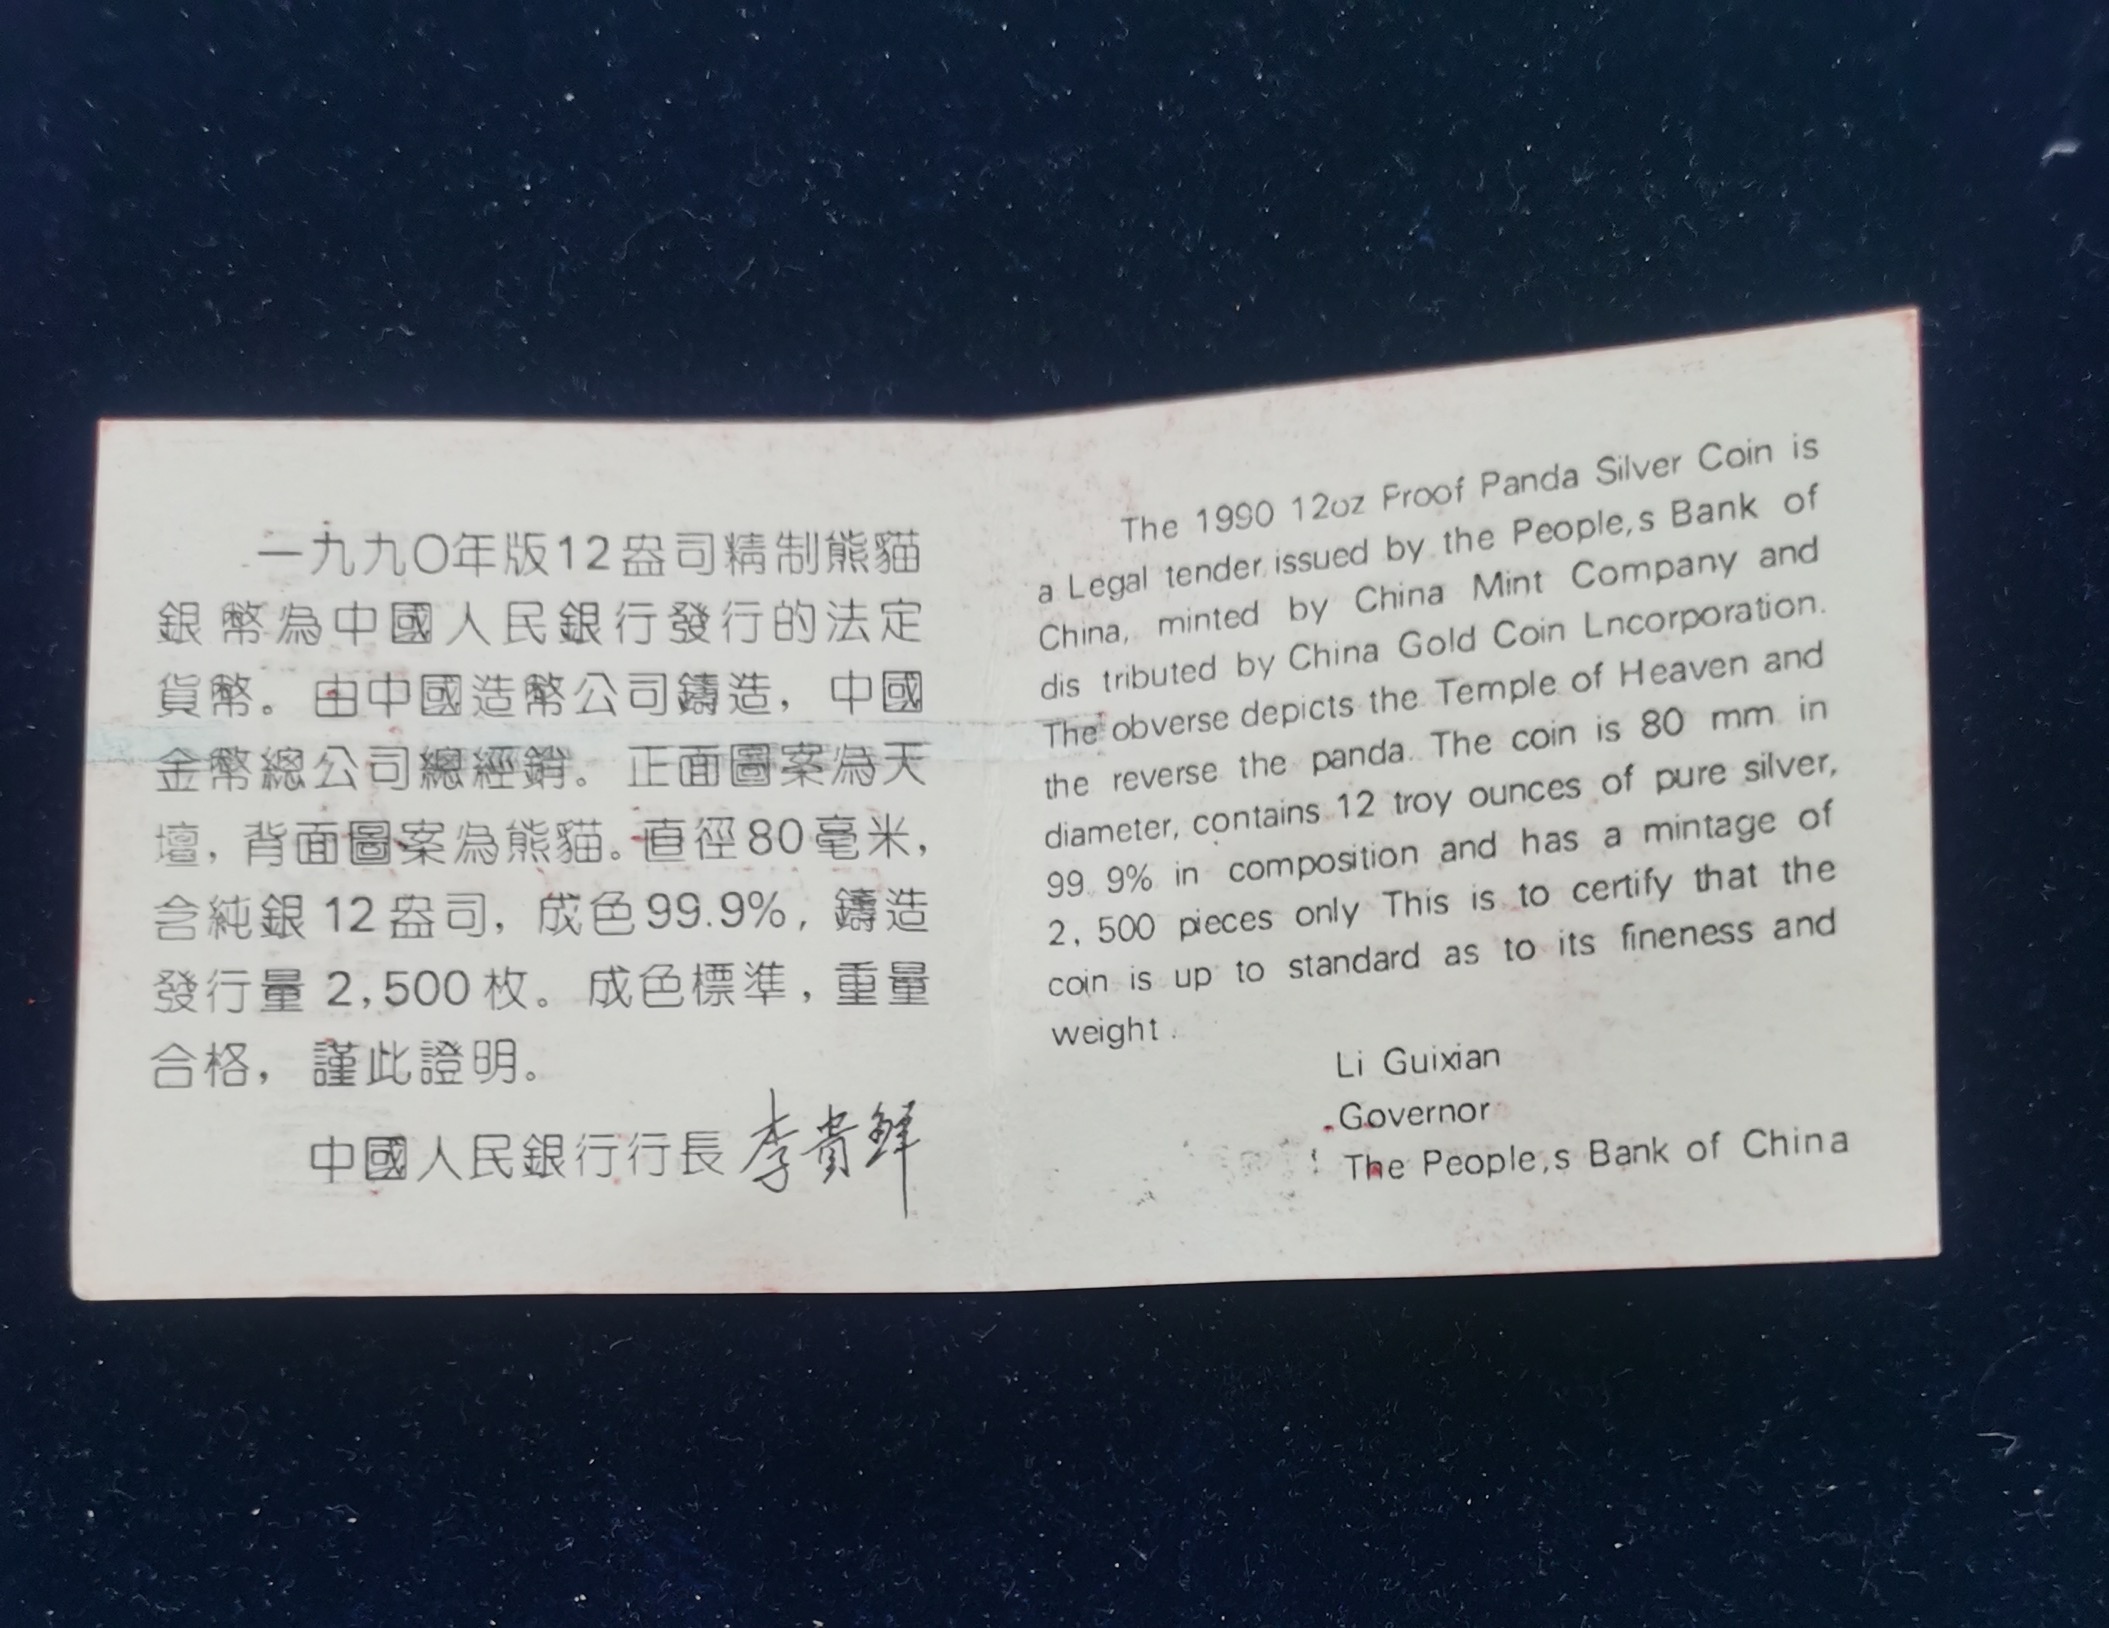 一九九〇年版12盎司精制熊貓
銀幣為中國人民銀行發行的法定
貨幣。由中國造幣公司鑄造，中國
金幣總公司總經銷。正面圖案為天
壇，背面圖案為熊貓。直徑80毫米，
含純銀12盎司，成色99.9%，鑄造
發行量2,500枚。成色標準，重量
合格，謹此證明。
中國人民銀行行長 李貴鮮
The 1990 12oz Proof Panda Silver Coin is
a Legal tender issued by the People,s Bank of
China, minted by China Mint Company and
dis tributed by China Gold Coin Lncorporation.
The obverse depicts the Temple of Heaven and
the reverse the panda. The coin is 80 mm in
diameter, contains 12 troy ounces of pure silver,
99.9% in composition and has a mintage of
2,500 pieces only This is to certify that the
coin is up to standard as to its fineness and
weight.
Li Guixian
Governor
The People,s Bank of China